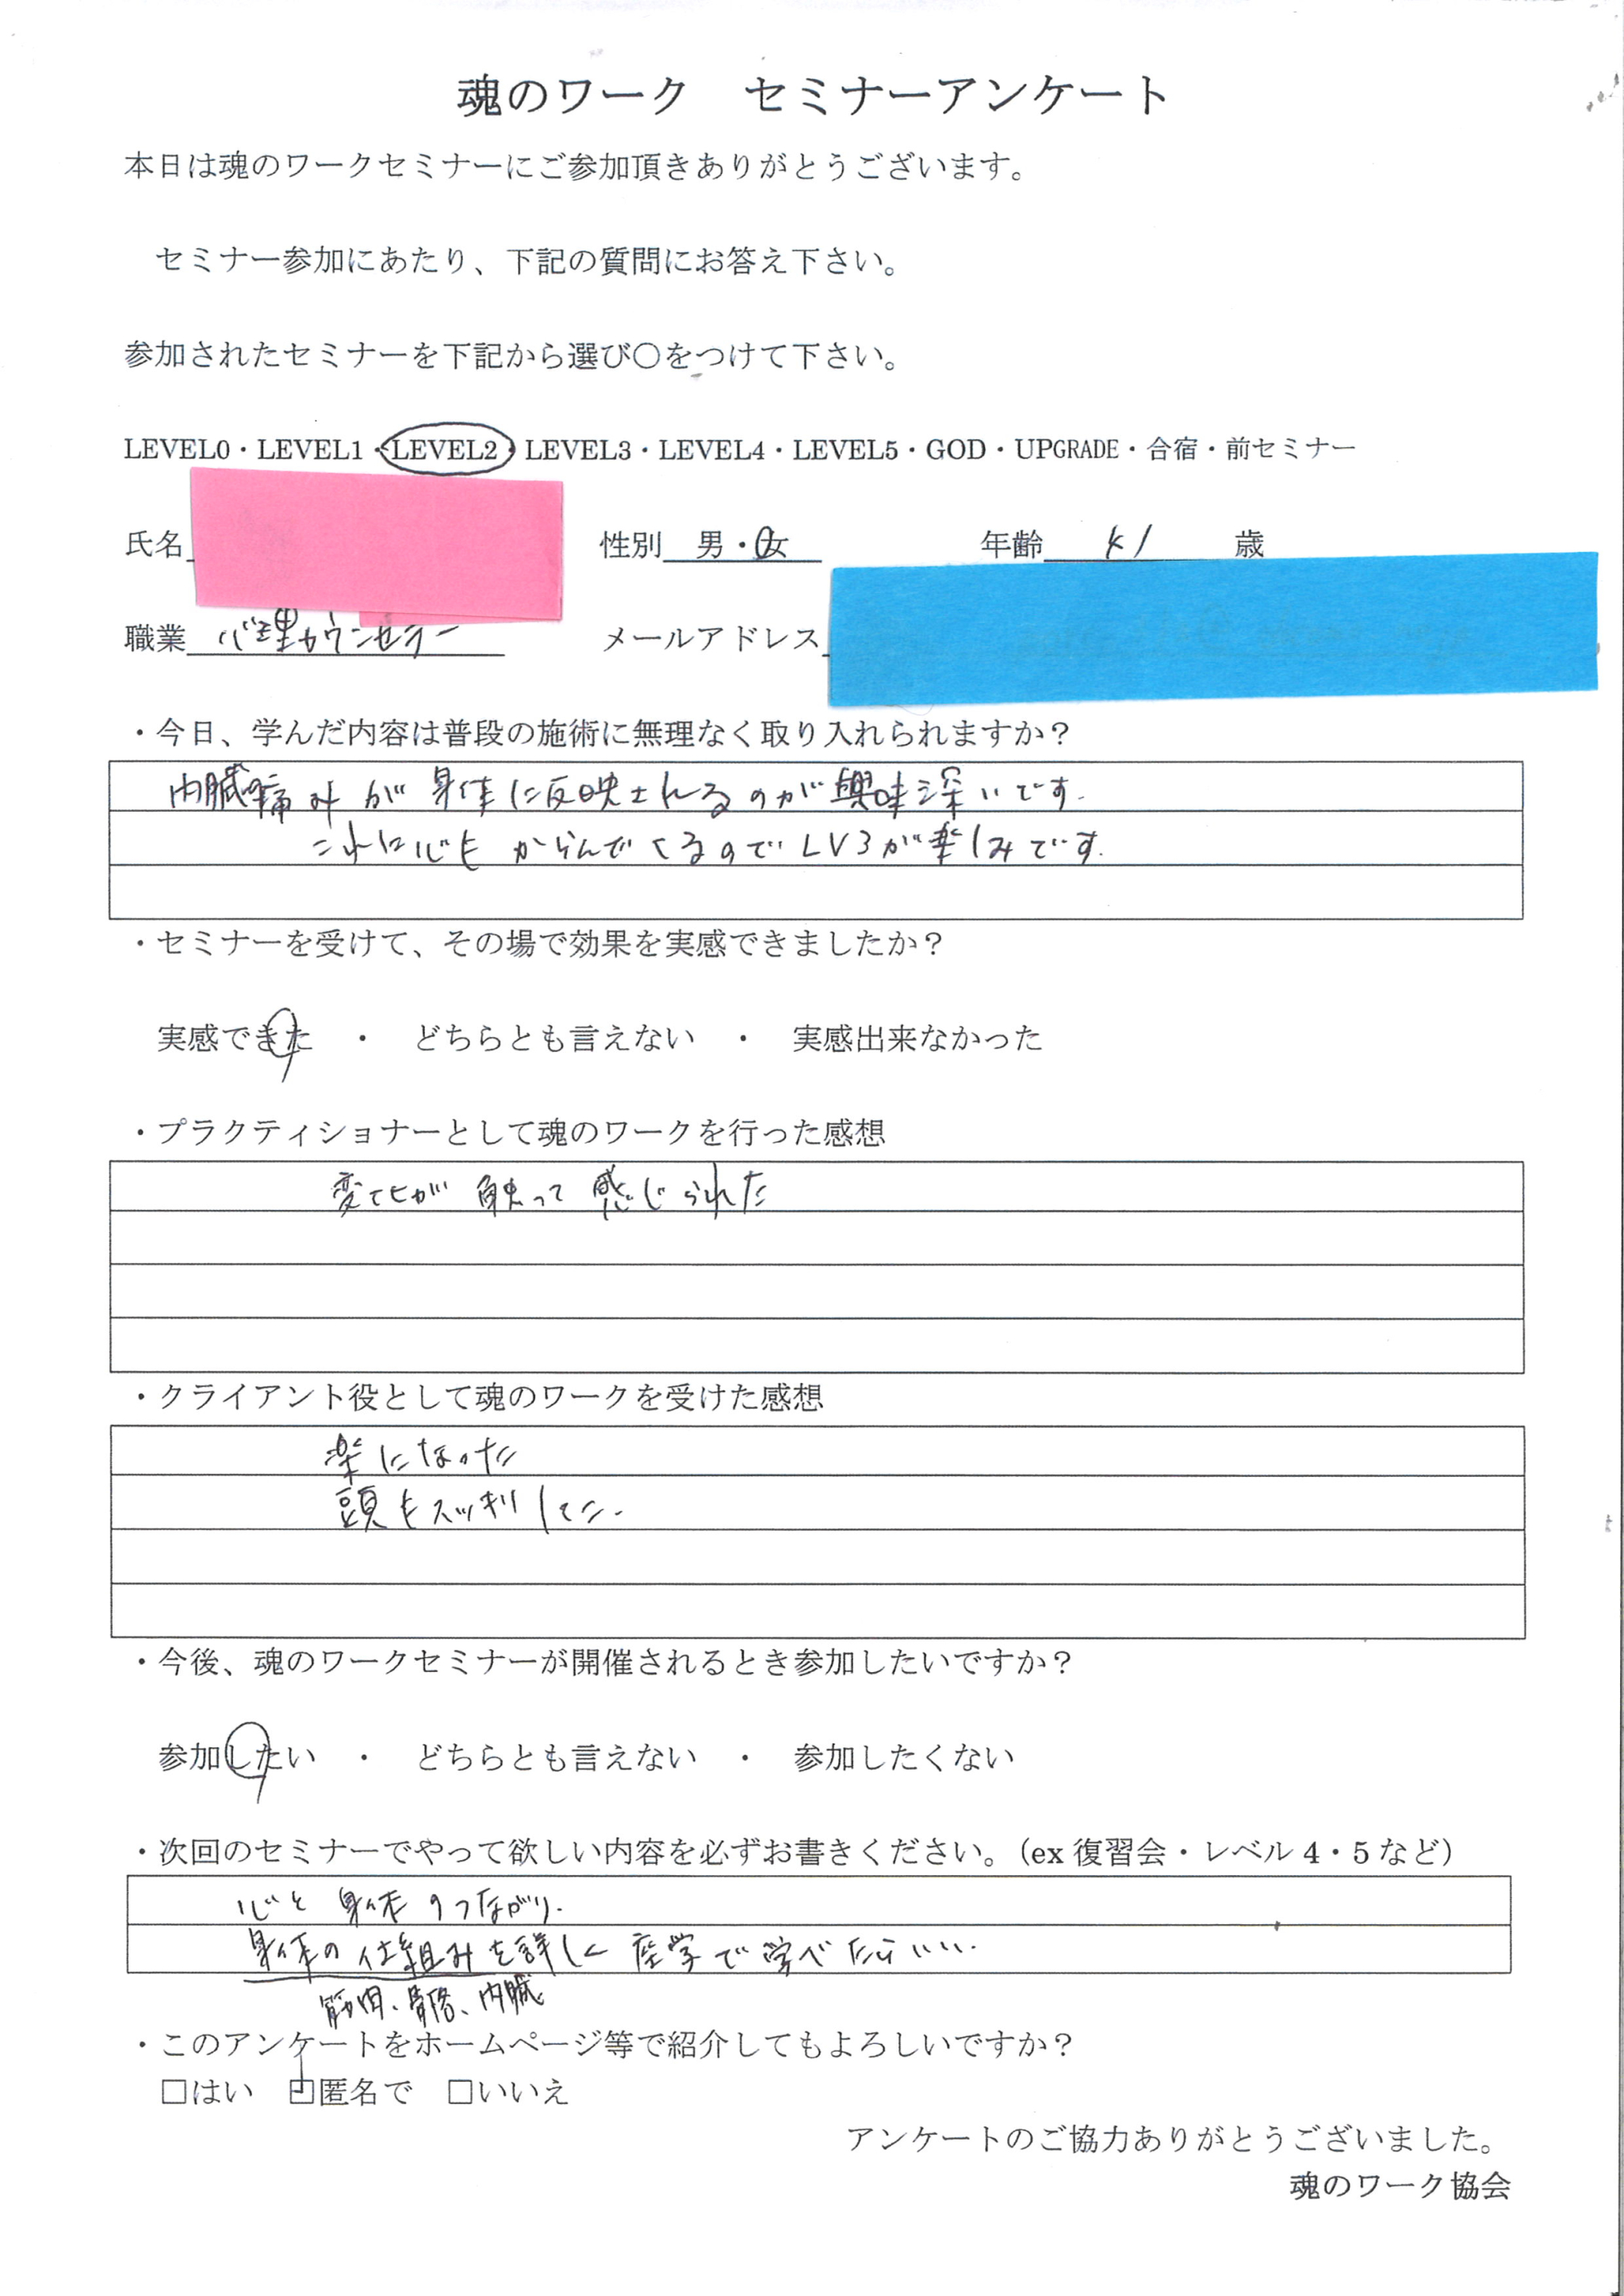 魂のワーク　セミナーアンケート
本日は魂のワークセミナーにご参加頂きありがとうございます。
セミナー参加にあたり、下記の質問にお答え下さい。
参加されたセミナーを下記から選び〇をつけて下さい。
LEVEL0・LEVEL1・LEVEL2・LEVEL3・LEVEL4・LEVEL5・GOD・UPGRADE・合宿・前セミナー
氏名 性別 男・女 年齢 歳
職業 心理カウンセラー メールアドレス
・今日、学んだ内容は普段の施術に無理なく取り入れられますか？
内臓痛みが身体に反映されるのが興味深いです.
これに心もからんでくるのでLV3が楽しみです.
・セミナーを受けて、その場で効果を実感できましたか？
実感できた　・　どちらとも言えない　・　実感出来なかった
・プラクティショナーとして魂のワークを行った感想
変化が触って感じられた
・クライアント役として魂のワークを受けた感想
楽になった
頭もスッキリした.
・今後、魂のワークセミナーが開催されるとき参加したいですか？
参加したい　・　どちらとも言えない　・　参加したくない
・次回のセミナーでやって欲しい内容を必ずお書きください。（ex 復習会・レベル 4・5 など）
心と身体のつながり.
身体の仕組みを詳しく座学で学べたらいい.
筋肉、骨格、内臓
・このアンケートをホームページ等で紹介してもよろしいですか？
□はい　□匿名で　□いいえ
アンケートのご協力ありがとうございました。
魂のワーク協会